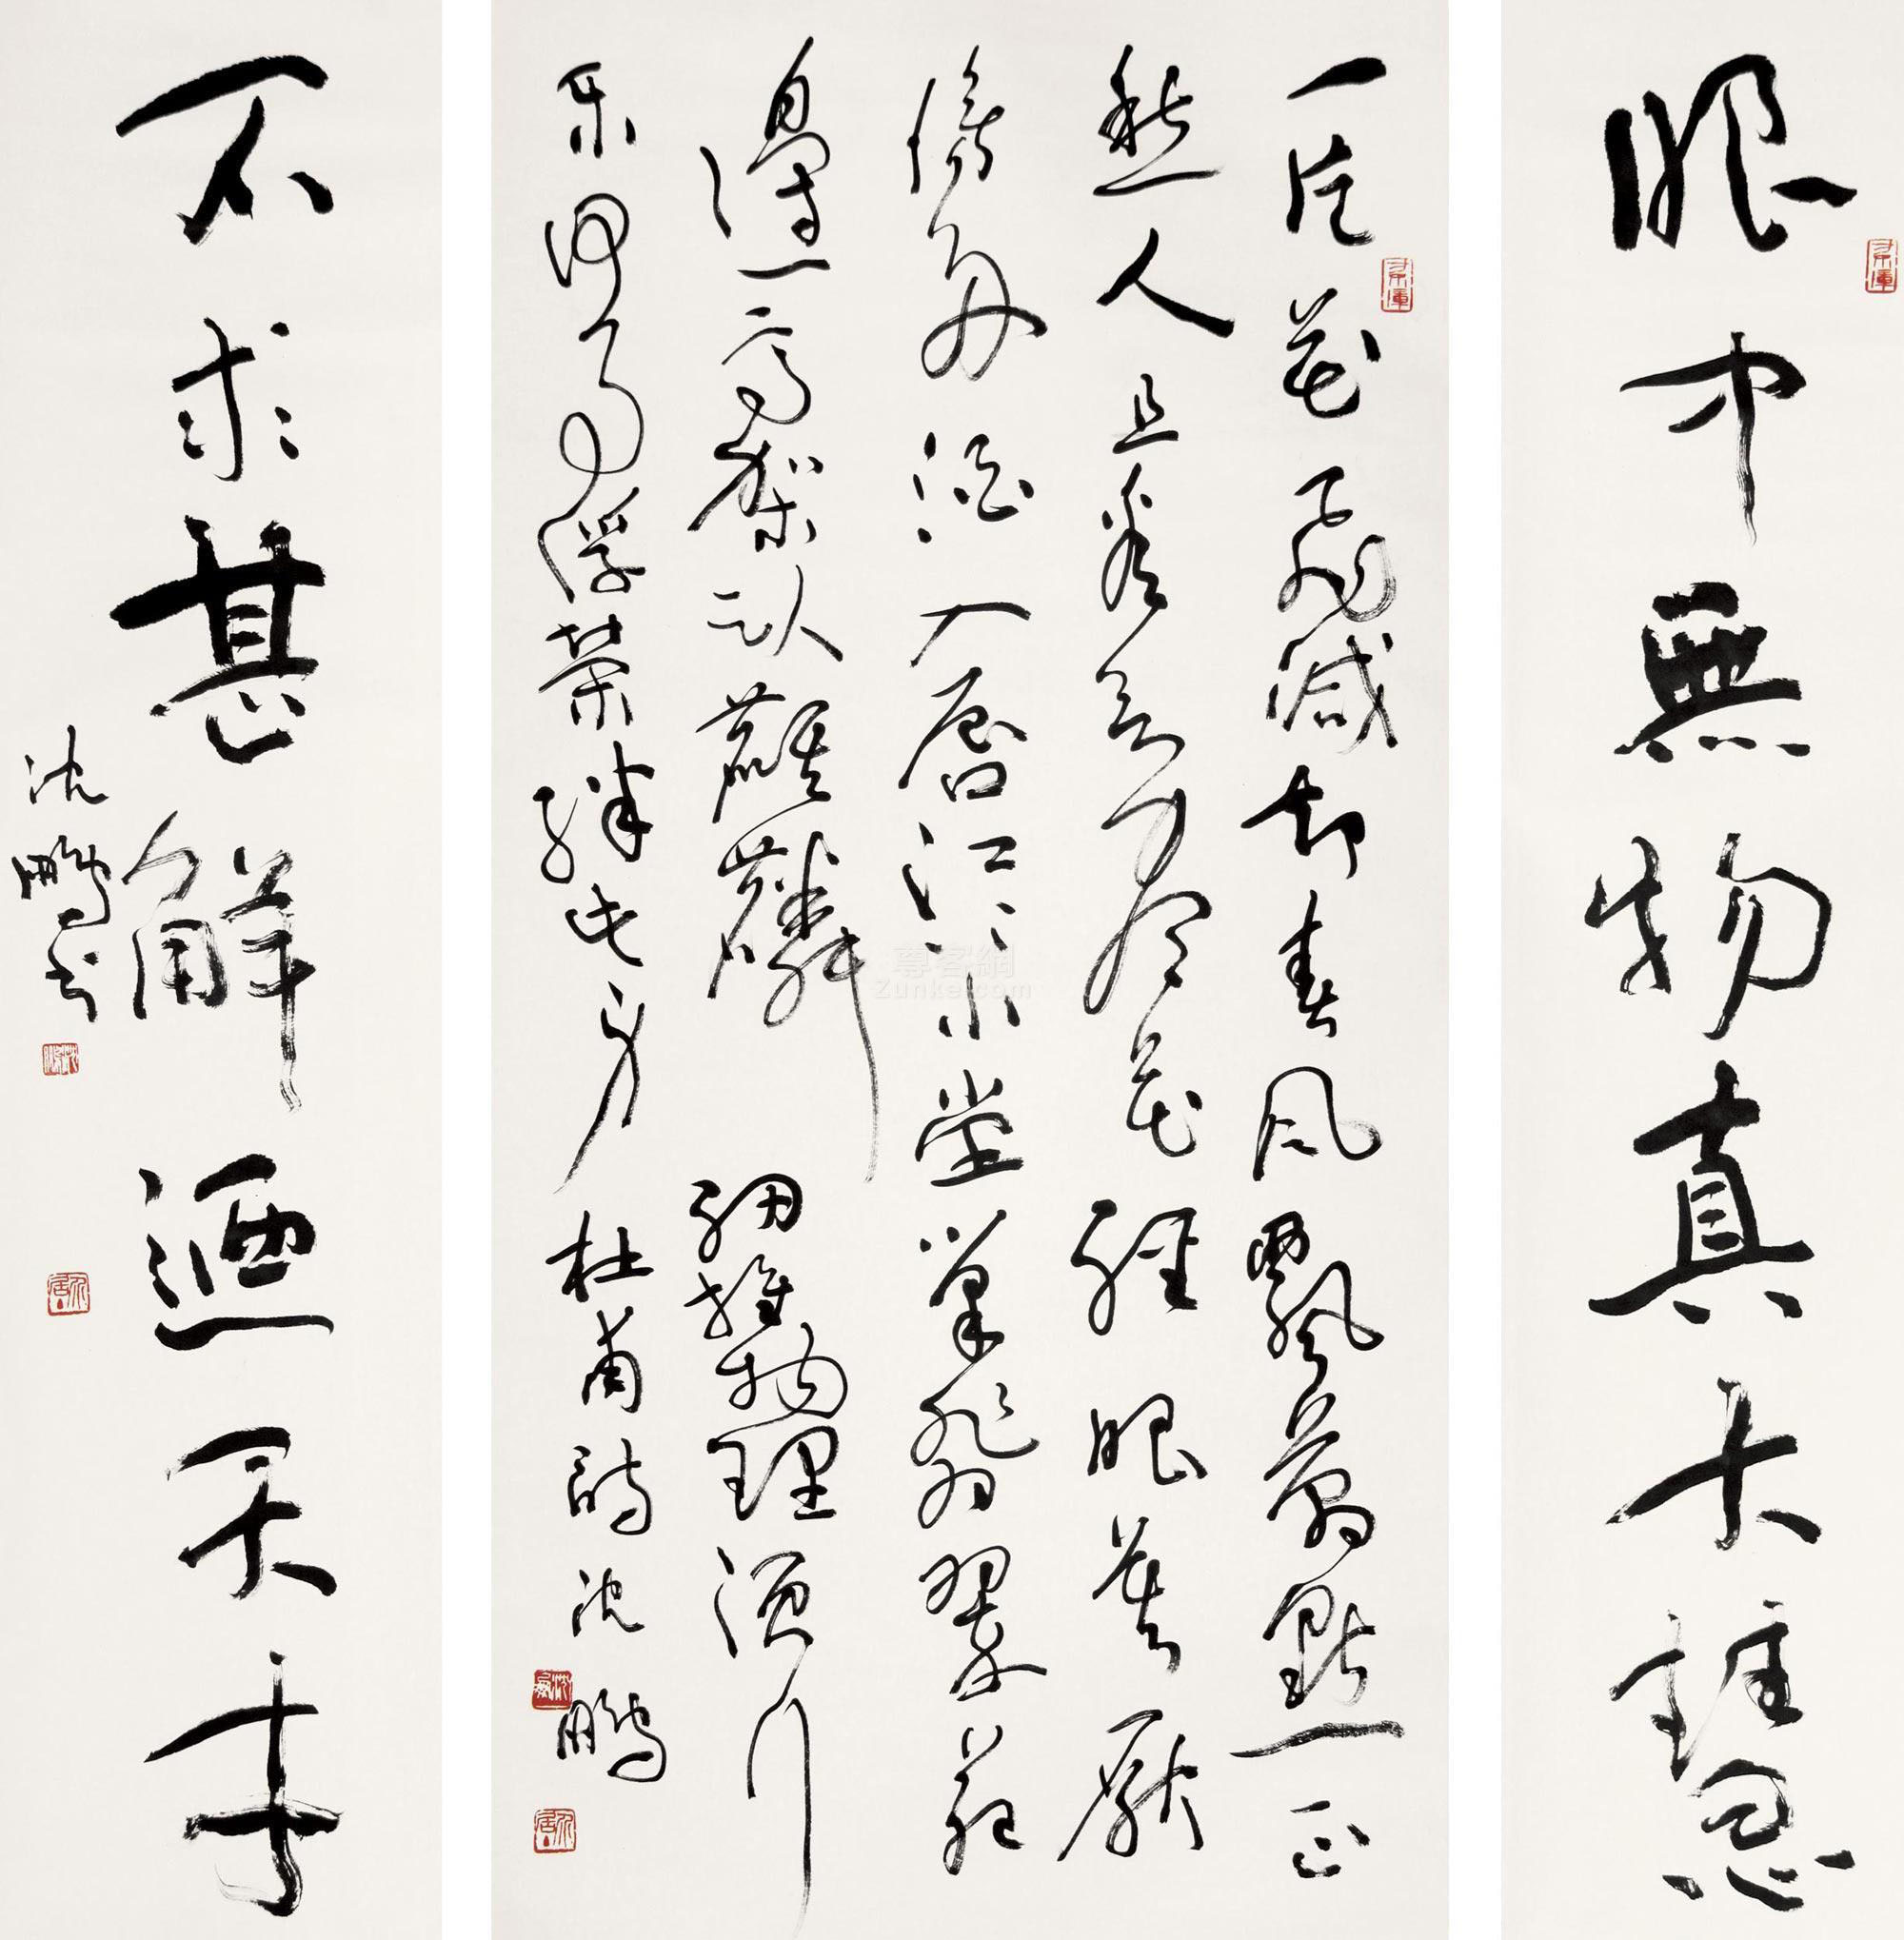 眼中無物真大慧
一片花飛減却春風飄萬點正
愁人且看欲盡花經眼莫厭
傷多酒入唇江上小堂巢翡翠苑
邊高冢臥麒麟細推物理須行
樂何用浮榮絆此身杜甫詩沈鵬
不求甚解迺天寿
沈鵬書
尊客網
Zunke.com